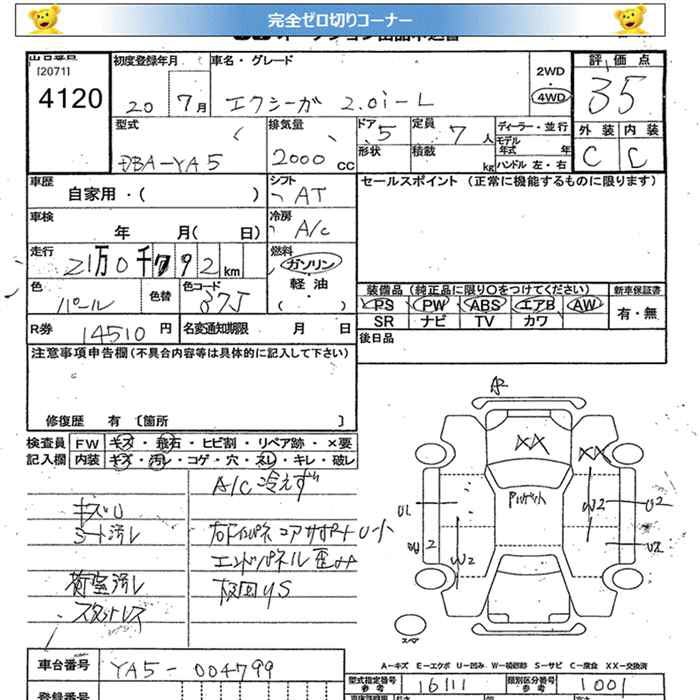 完全ゼロ切りコーナー
[2071]
初度登録年月
車名・グレード
評価点
4120
20 7月
エクシーガ 2.0i-L
2WD
・
4WD
35
型式
排気量
ドア 5
定員 7人
ディーラー・並行
外装 内装
DBA-YA5
2000 CC
形状
積載 kg
モデル年式 年
ハンドル 左・右
C C
車歴
自家用・( )
シフト
AT
セールスポイント (正常に機能するものに限ります)
車検
年 月( 日)
冷房
A/C
走行
21万0千792km
燃料
ガソリン
軽油
( )
色
パール
色替
色コード
37J
装備品 (純正品に限り○をつけてください)
新車保証書
PS PW ABS エアB AW
有・無
SR ナビ TV カワ
R券 14510円
名変通知期限 月 日
後日品
注意事項申告欄(不具合内容等は具体的に記入して下さい)
修復歴 有 〔箇所 〕
検査員 FW キズ・飛石・ヒビ割・リペア跡・×要
記入欄 内装 キズ・汚レ・コゲ・穴・スレ・キレ・破レ
A/C冷えず
キズU
シート汚レ
右Fインパネ コアサポートU小
エンドパネル歪み
荷室汚レ
板固US
スタットレス
A2
XX
XX
U1
W2
U2
W2
U2
スペア
A-キズ E-エクボ U-凹み W-補修跡 S-サビ C-腐食 XX-交換済
車台番号 YA5-004799
型式指定番号 参考 16111
類別区分番号 参考 1001
登録番号